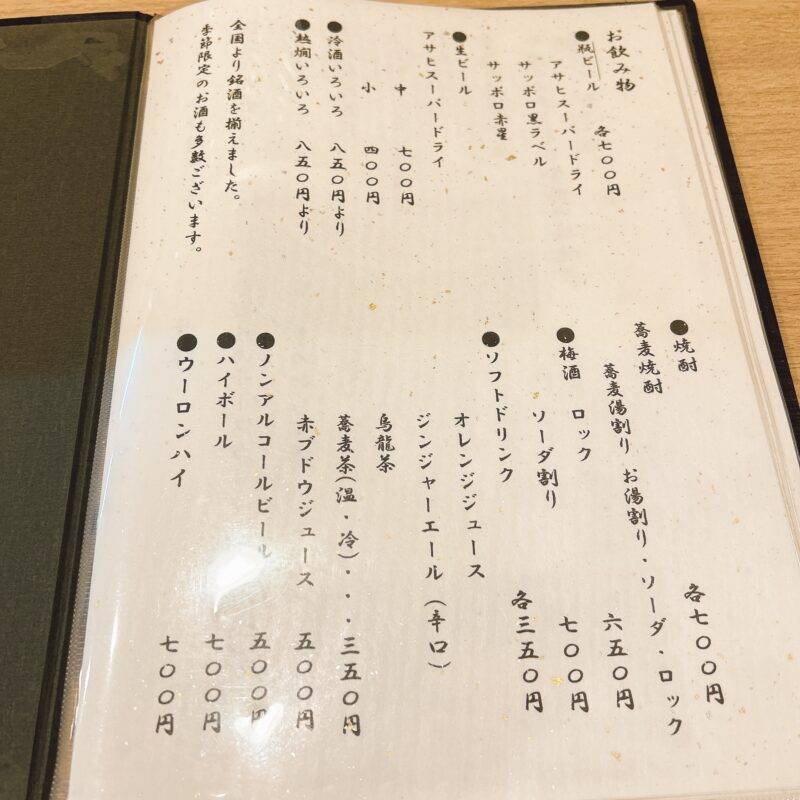 お飲み物
●瓶ビール 各七〇〇円
アサヒスーパードライ
サッポロ黒ラベル
サッポロ赤星
●生ビール
アサヒスーパードライ
中 七〇〇円
小 四〇〇円
●冷酒いろいろ 八五〇円より
●熱燗いろいろ 八五〇円より
全国より銘酒を揃えました。
季節限定のお酒も多数ございます。
●焼酎 各七〇〇円
蕎麦焼酎
蕎麦湯割り お湯割り・ソーダ・ロック
●梅酒 ロック 六五〇円
ソーダ割り 七〇〇円
●ソフトドリンク 各三五〇円
オレンジジュース
ジンジャーエール(辛口)
烏龍茶
蕎麦茶(温・冷)・・・三五〇円
赤ブドウジュース 五〇〇円
●ノンアルコールビール 五〇〇円
●ハイボール 七〇〇円
●ウーロンハイ 七〇〇円